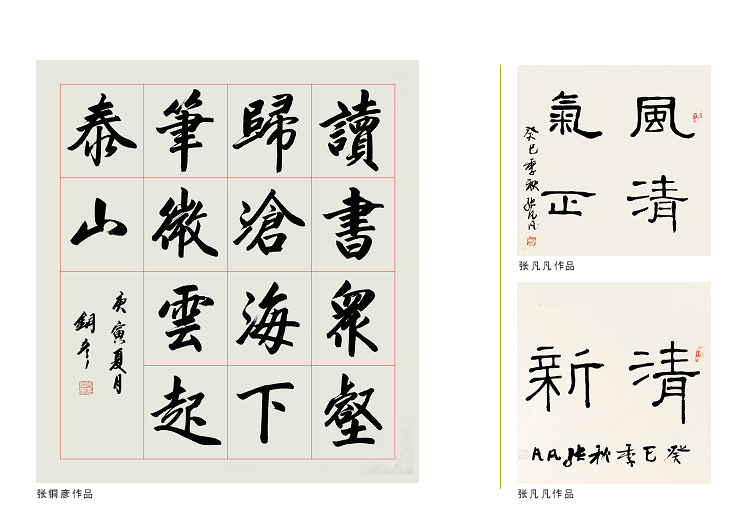 讀書眾壑
歸滄海下
筆微雲起
泰山
庚寅夏月
銅彥
张铜彦作品
風清
氣正
癸巳季秋张凡凡
张凡凡作品
清新
癸巳季秋张凡凡
张凡凡作品